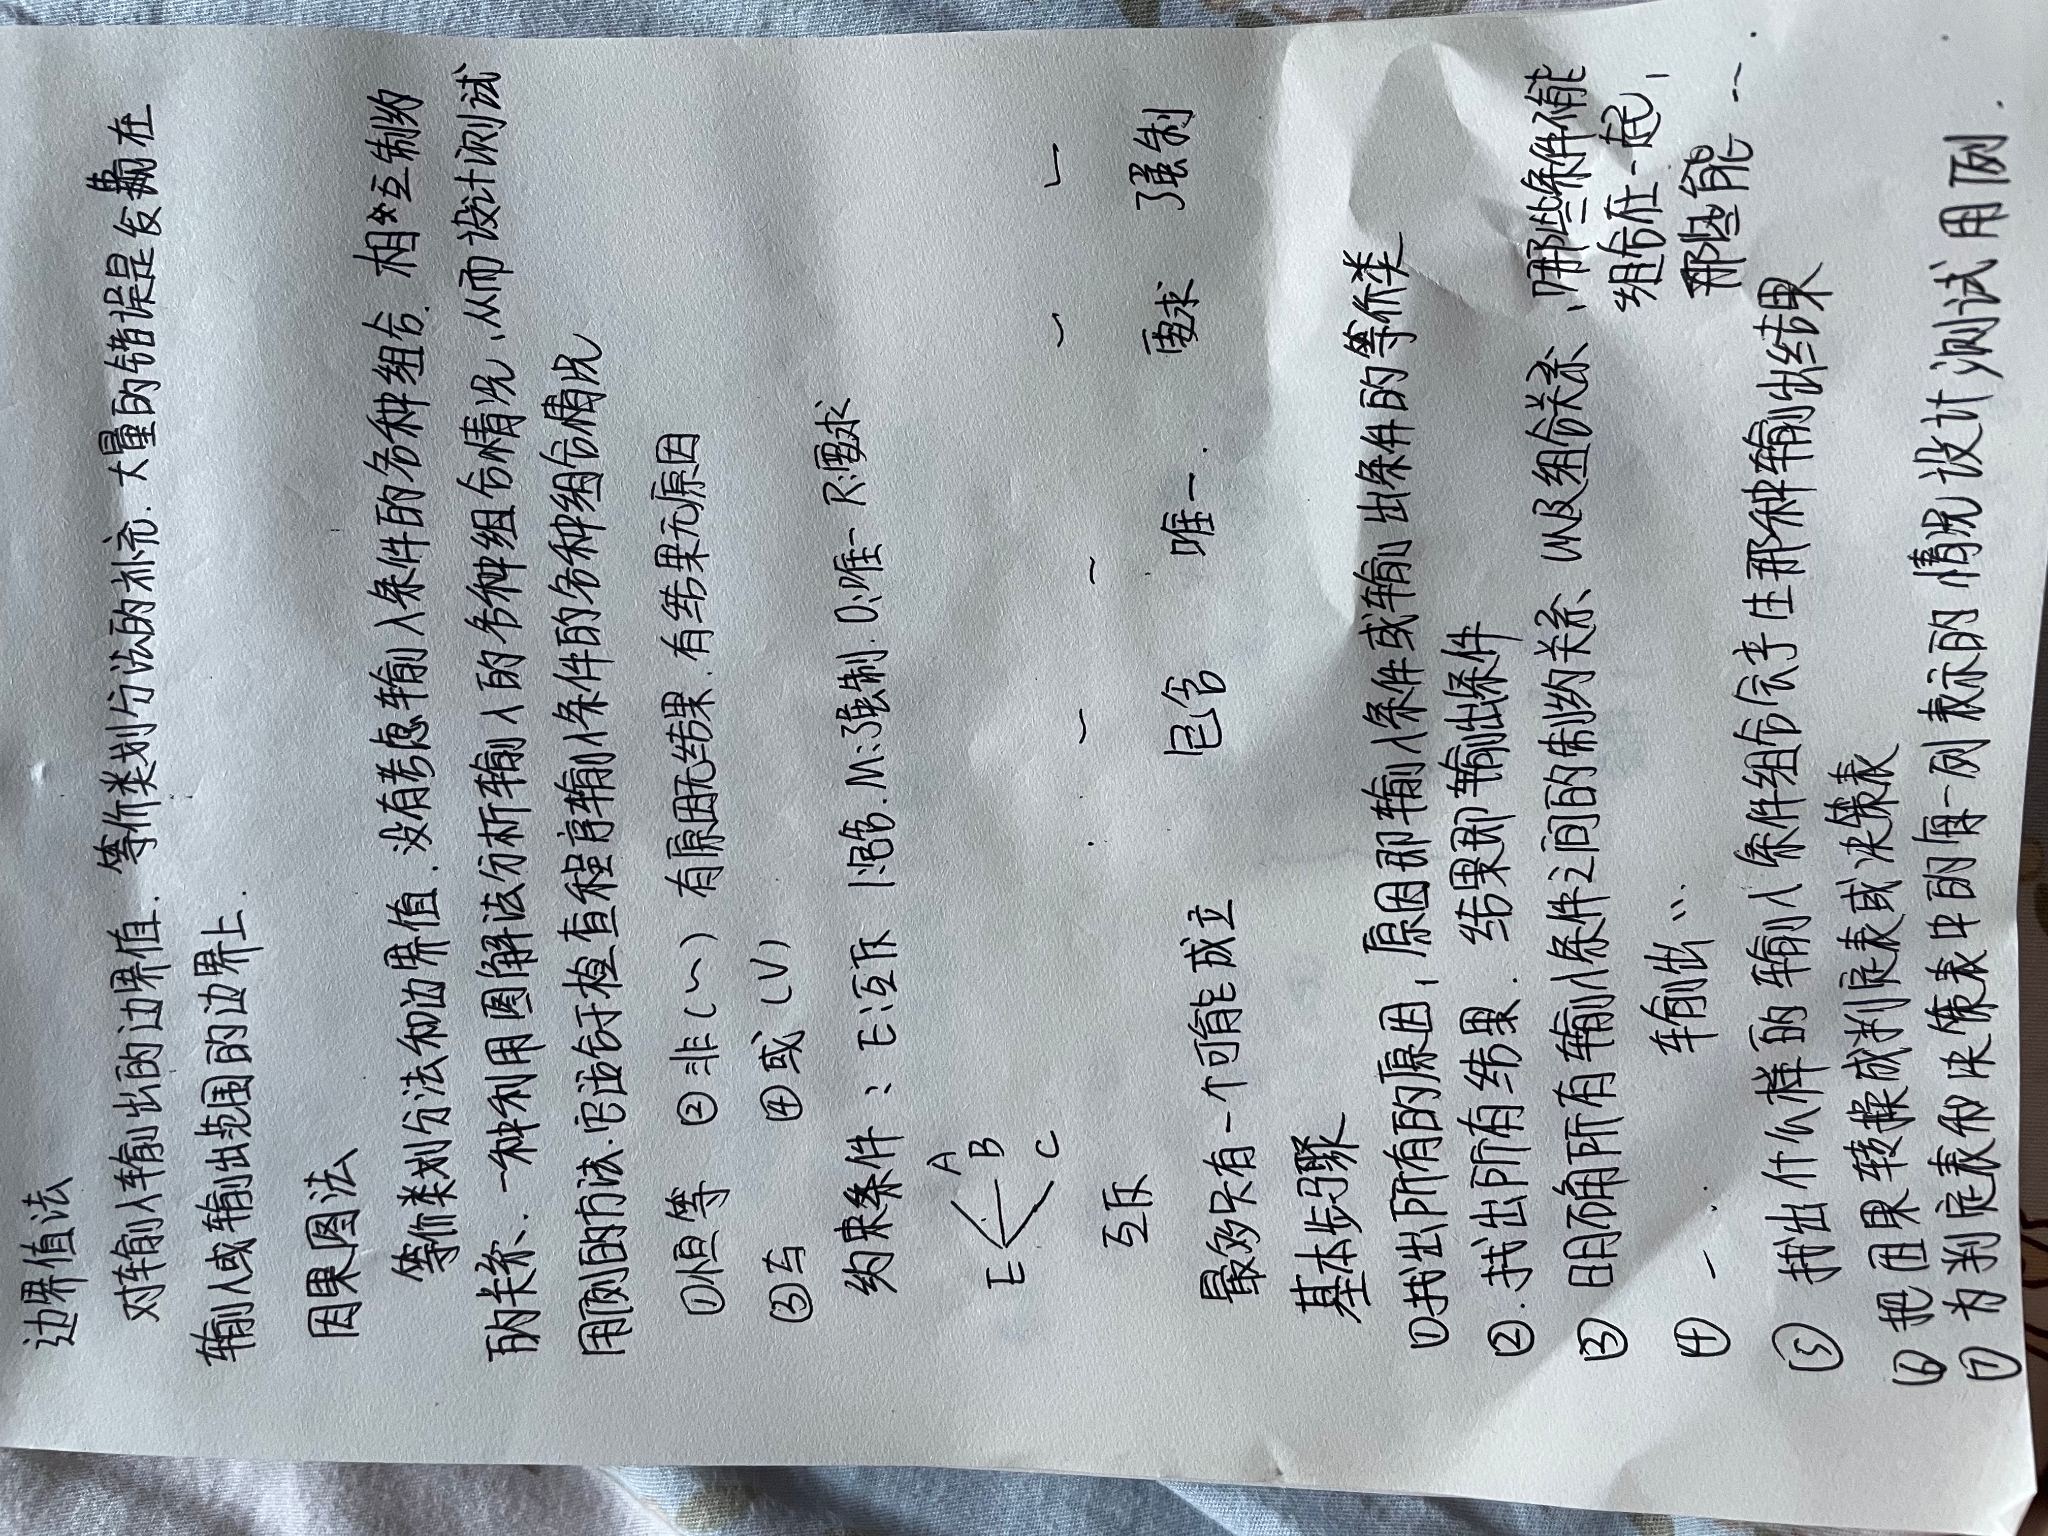 边界值法
对输入输出的边界值. 等价类划分法的补充. 大量的错误是发生在
输入或输出范围的边界上.
因果图法
等价类划分法和边界值. 没有考虑输入条件的各种组合. 相互制约
的关系、一种利用图解法分析输入的各种组合情况,从而设计测试
用例的方法.它适合于检查程序输入条件的各种组合情况
①恒等 ②非(~) 有原因无结果.有结果无原因
③与 ④或(V)
约束条件: E:互斥 I:包含.M:强制.O:唯一 R:要求
A
E B
C
互斥 包含 唯一. 要求 强制
最多只有一个可能成立
基本步骤
①找出所有的原因,原因即输入条件或输出条件的等价类
②.找出所有结果.结果即输出条件
③ 明确所有输入条件之间的制约关系、以及组合关系、哪些条件能
组合在一起,
那些能 ...
④ 一. 输出..
⑤ 找出什么样的输入条件组合会产生那种输出结果
⑥ 把因果转换成判定表或决策表
⑦ 为判定表和决策表中的每一列表示的情况设计测试用例.